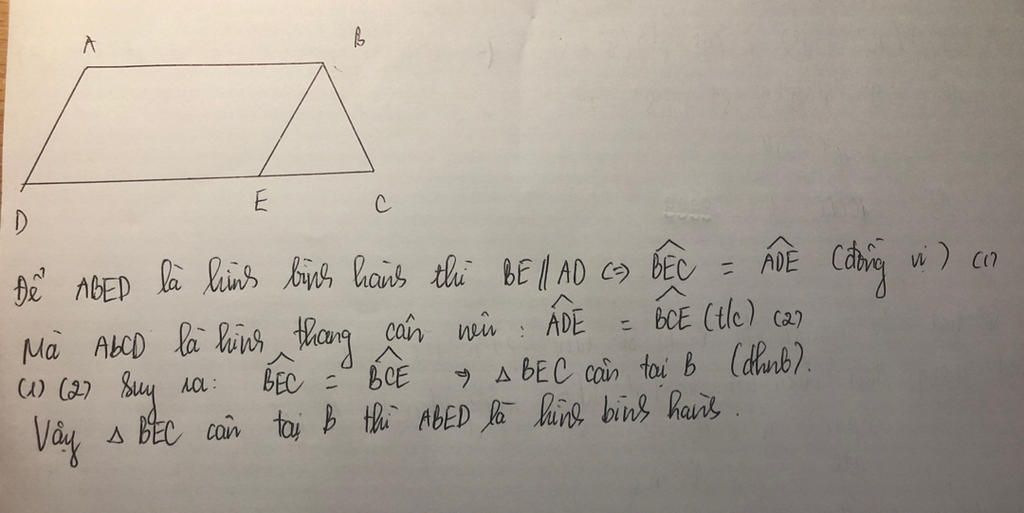 A B
D E C
Để ABED là hình bình hành thì BE // AD <=> \widehat{BEC} = \widehat{ADE} (đồng vị) (1)
Mà ABCD là hình thang cân nên : \widehat{ADE} = \widehat{BCE} (t/c) (2)
(1) (2) suy ra: \widehat{BEC} = \widehat{BCE} → Δ BEC cân tại B (dhnb).
Vậy Δ BEC cân tại B thì ABED là hình bình hành.